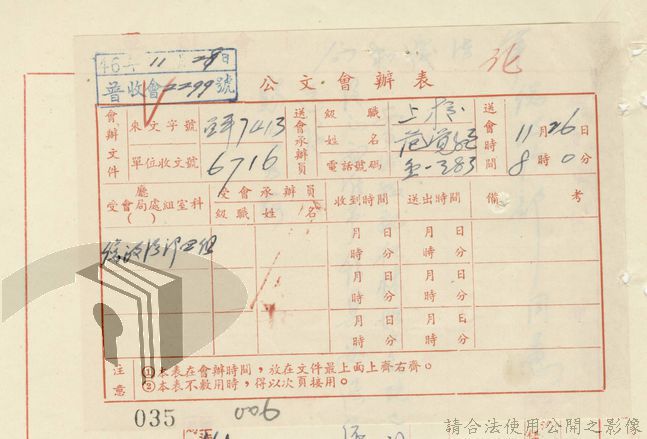 46年 11月 28日
普收會2299號
公文會辦表
會辦文件
來文字號 7413
單位收文號 6716
送會承辦員
級職 上校
姓名
電話號碼
送會時間
11月26日
8時0分
廳
受會局處組室科
( )
受會承辦員
級職 姓名
收到時間
送出時間
備考
月 日 月 日
時 分 時 分
月 日 月 日
時 分 時 分
月 日 月 日
時 分 時 分
注意
①本表在會辦時間，放在文件最上面上齊右齊。
②本表不敷用時，得以次頁接用。
035
006
請合法使用公開之影像